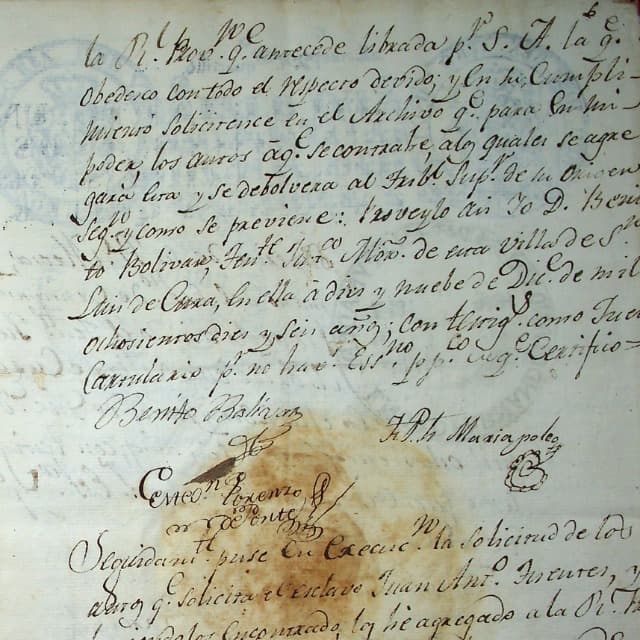 la R.l Prov.n q.e antecede librada p.r S. A. la q.e
obedesco con todo el respecto devido; y en su Cumpli-
miento solicitence en el Archivo q.e para en mi
poder, los autos aq.e se contrahe, alos quales se agre
gará esta y se debolvera al Trib.l Sup.r de su Origen
seg.n y como se previene: Proveylo asi Yo D. Beni
to Bolivar, Ten.te Just.a Mor. de esta Villa de S.n
Luis de Cura, en ella á dies y nuebe de Dic.e de mil
ochosientos dies y seis años; con testig.s como Jues
Cartulario p.r no haver Ess.no pp.co de q.e Certifico=
Benito Bolivar
Jph Maria poleo
Lorenzo
Seguidam.te puse en execuc.n la solicitud de los
autos q.e solicita el esclavo Juan Ant.o Fuentes, y
encontrado, los he agregado a la R.l